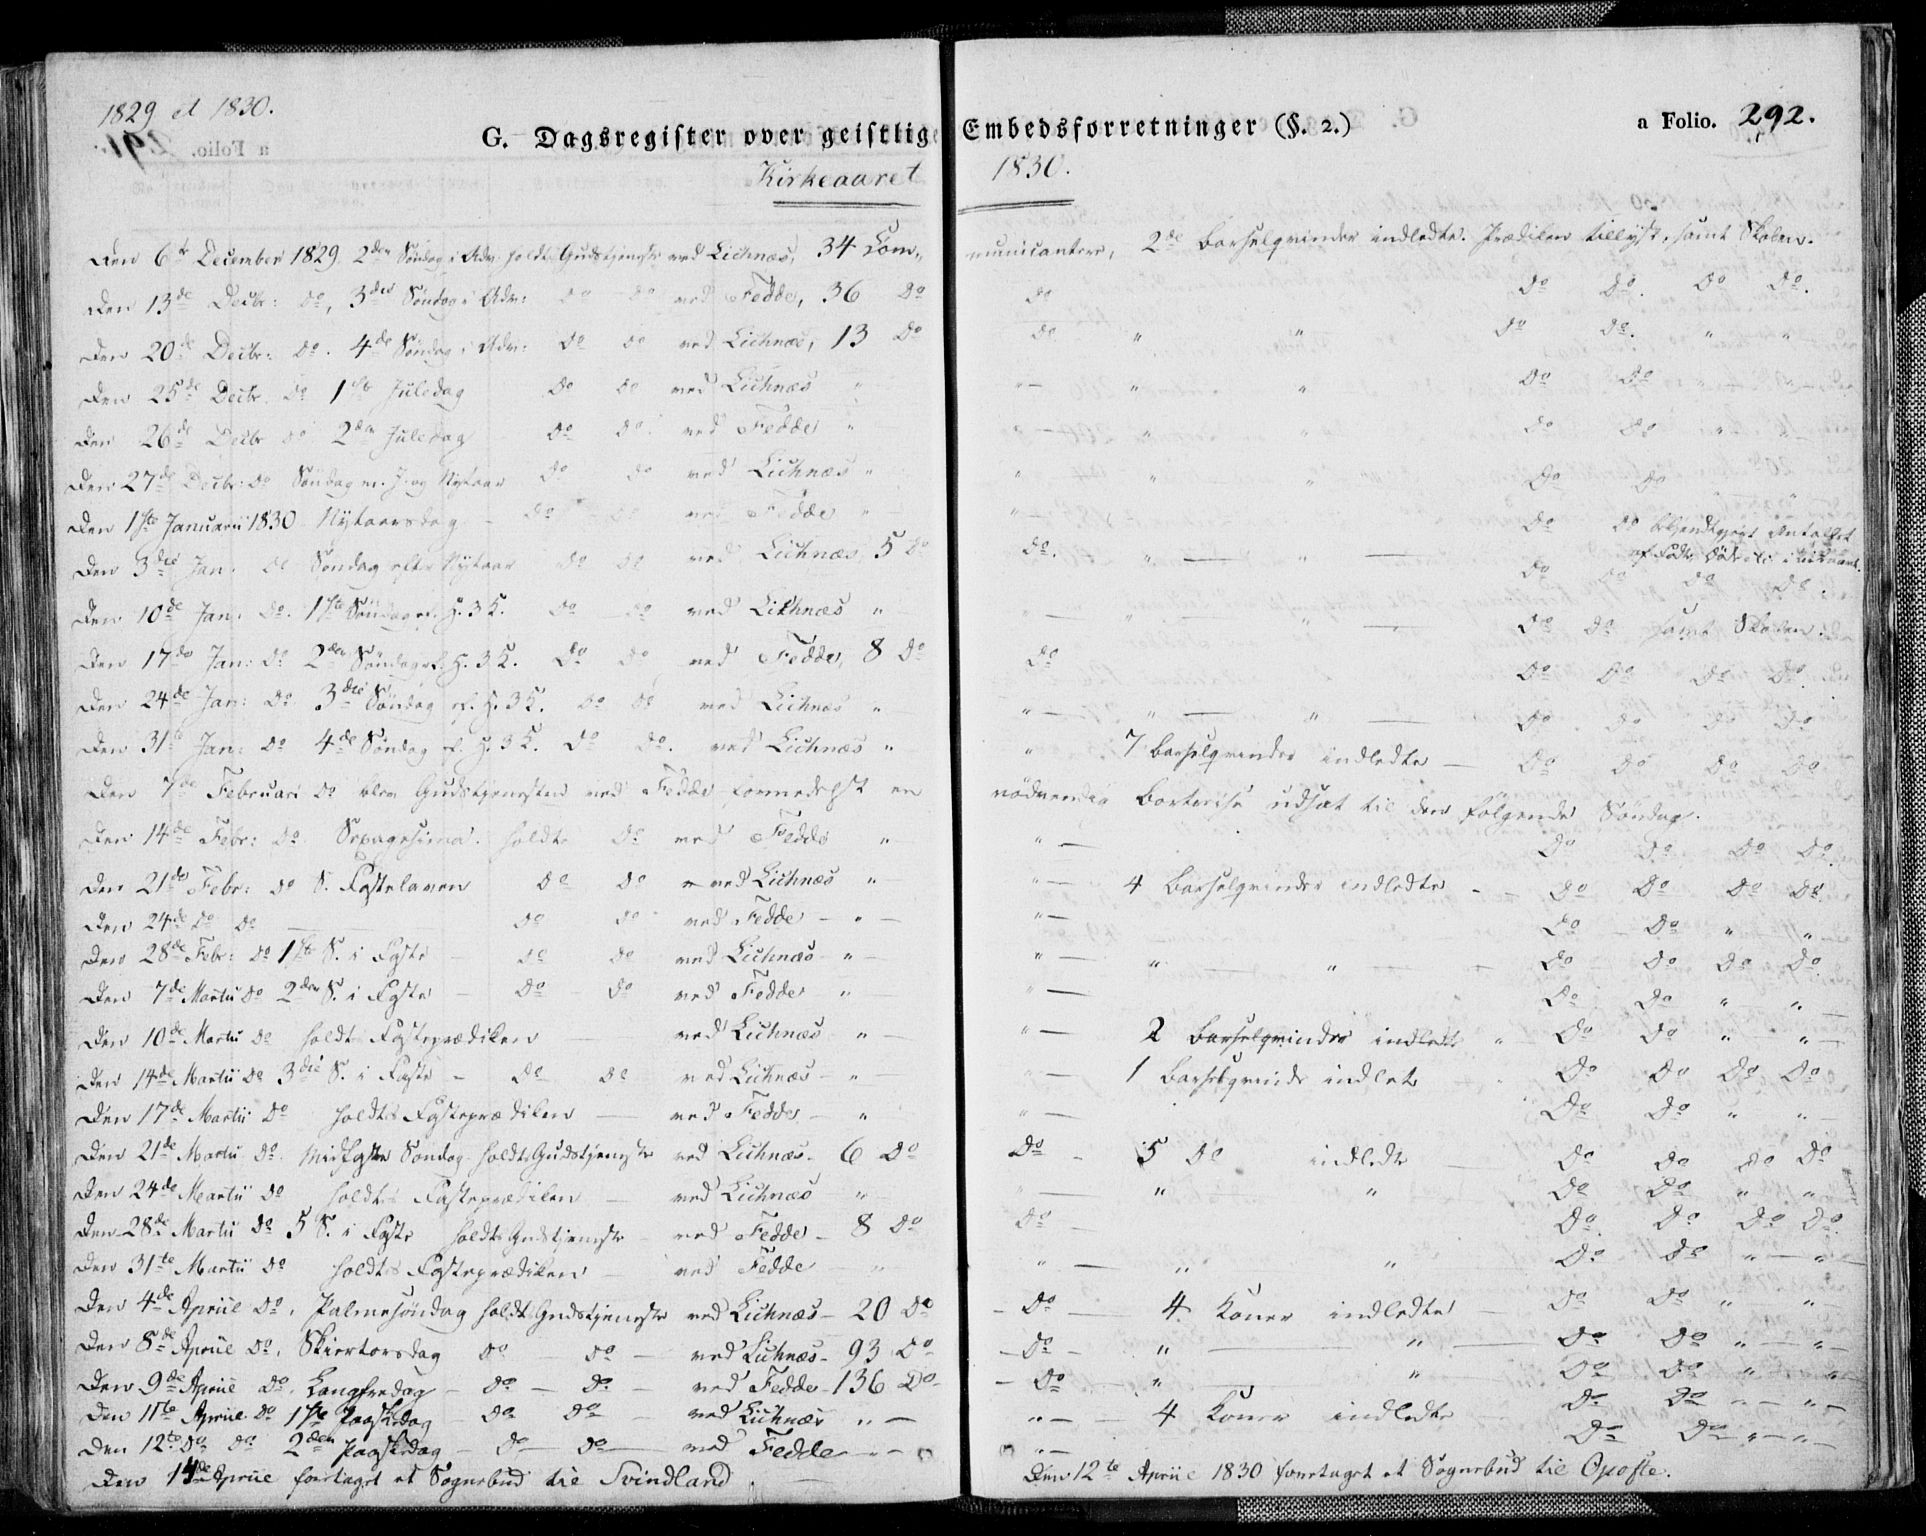 1829 et 1830.
G. Dagsregister over geistlige Embedsforretninger (§. 2.) a Folio. 292.
Kirkeaaret 1830.
Den 6te December 1829 2den Søndag i Adv: holdt Gudstjeneste ved Lichnæs, 34 Communicantere, 2de Barselqvinder indledte. Prædiken tillyst, samt Skolen.
Den 13de Decbr: Do, 3die Søndag i Adv: Do Do ved Fedde, 36 Do Do Do Do. Do Do.
Den 20de Decbr: Do. 4de Søndag i Adv: Do Do ved Lichnæs, 13 Do Do " " Do Do. " "
Den 25de Decbr. Do 1ste Juledag Do Do ved Lichnæs " " " " Do Do " "
Den 26de Decbr Do 2den Juledag Do Do. ved Fedde " " " Do Do " "
Den 27de Decbr: Do Søndag m. J. og Nytaar Do Do ved Lichnæs " " " " Do Do " "
Den 1ste Januarii 1830 Nytaarsdag - Do Do ved Fedde " " Do Do bekendtgjort Antallet
af Fødte, Døde etc. i Kirkeaaret.
Den 3die Jan. Do Søndag efter Nytaar Do Do ved Lichnæs 5 Do Do. " " Do Do Do Do.
Den 10de Jan: Do. 1ste Søndag ef. H. 3 K. Do Do ved Lichnæs " " " " Do Do samt Skolen.
Den 17de Jan: Do 2den Søndag ef. H. 3 K. Do Do ved Fedde, 8 Do Do Do Do Do Do.
Den 24de Jan: Do 3die Søndag ef. H. 3 K. Do Do ved Lichnæs " " " " Do Do Do Do
Den 31te Jan: Do 4de Søndag ef. H. 3 K. Do Do. ved Lichnæs " " 7 Barselqvinder indledte - Do Do Do Do
Den 7de Februari Do blev Gudstjenesten ved Fedde formedelst en nödvendig Bortreise udsat til den følgende Søndag.
Den 14de Febr: Do Sepagesima. holdt Do ved Fedde " " Do Do Do Do.
Den 21de Febr: Do S. Fastelaven Do Do ved Lichnæs " " 4 Barselqvinder indledte - Do Do Do Do
Den 24de Do Do Do Do ved Fedde - " - " Do Do " "
Den 28de Febr: Do 1ste S. i Faste - Do Do ved Lichnæs - " - " " " Do Do Do Do.
Den 7de Martii Do 2den S. i Faste - Do Do ved Fedde " " Do Do " "
Den 10de Martii Do holdt Fasteprædiken ved Lichnæs " " 2 Barselqvinder indledte " Do Do " "
Den 14de Martii Do 3die S. i Faste - Do Do ved Lichnæs - " " 1 Barselqvinde indlet Do Do Do Do
Den 17de Martii Do holdtes Fasteprædiken ved Fedde - " " Do Do " "
Den 21de Martii Do. Midfaste Søndag holdt Gudstjeneste ved Lichnæs - 6 Do Do - 5 Do indledte Do Do Do Do
Den 24de Martii Do holdtes Fasteprædiken - ved Lichnæs " " " " Do Do " "
Den 28de Martii Do 5 S. i Faste holdt Gudstjeneste - ved Fedde - 8 Do Do Do. Do Do Do.
Den 31te Martii Do holdtes Fasteprædiken - ved Fedde " " " " Do Do " "
Den 4de Apriil Do. Palmesøndag holdt Gudstjeneste ved Lichnæs - 20 Do - Do 4 Koner indledte Do Do " "
Den 8de Apriil Do. Skiertorsdag Do Do - ved Lichnæs - 93 Do - Do - " " Do Do " "
Den 9de Apriil Do. Langfredag - Do - Do - ved Fedde - 136 Do - Do - " " Do Do " "
Den 11te Apriil Do 1ste Paaskedag - Do Do - ved Lichnæs " - " - 4 Koner indledte Do Do " "
Den 12te Do Do 2den Paaskedag - Do Do ved Fedde " - " - Do Do " "
Den 14de Apriil foretaget et Sognebud til Svindland
Den 12te Apriil 1830 foretaget et Sognebud til Opofte.